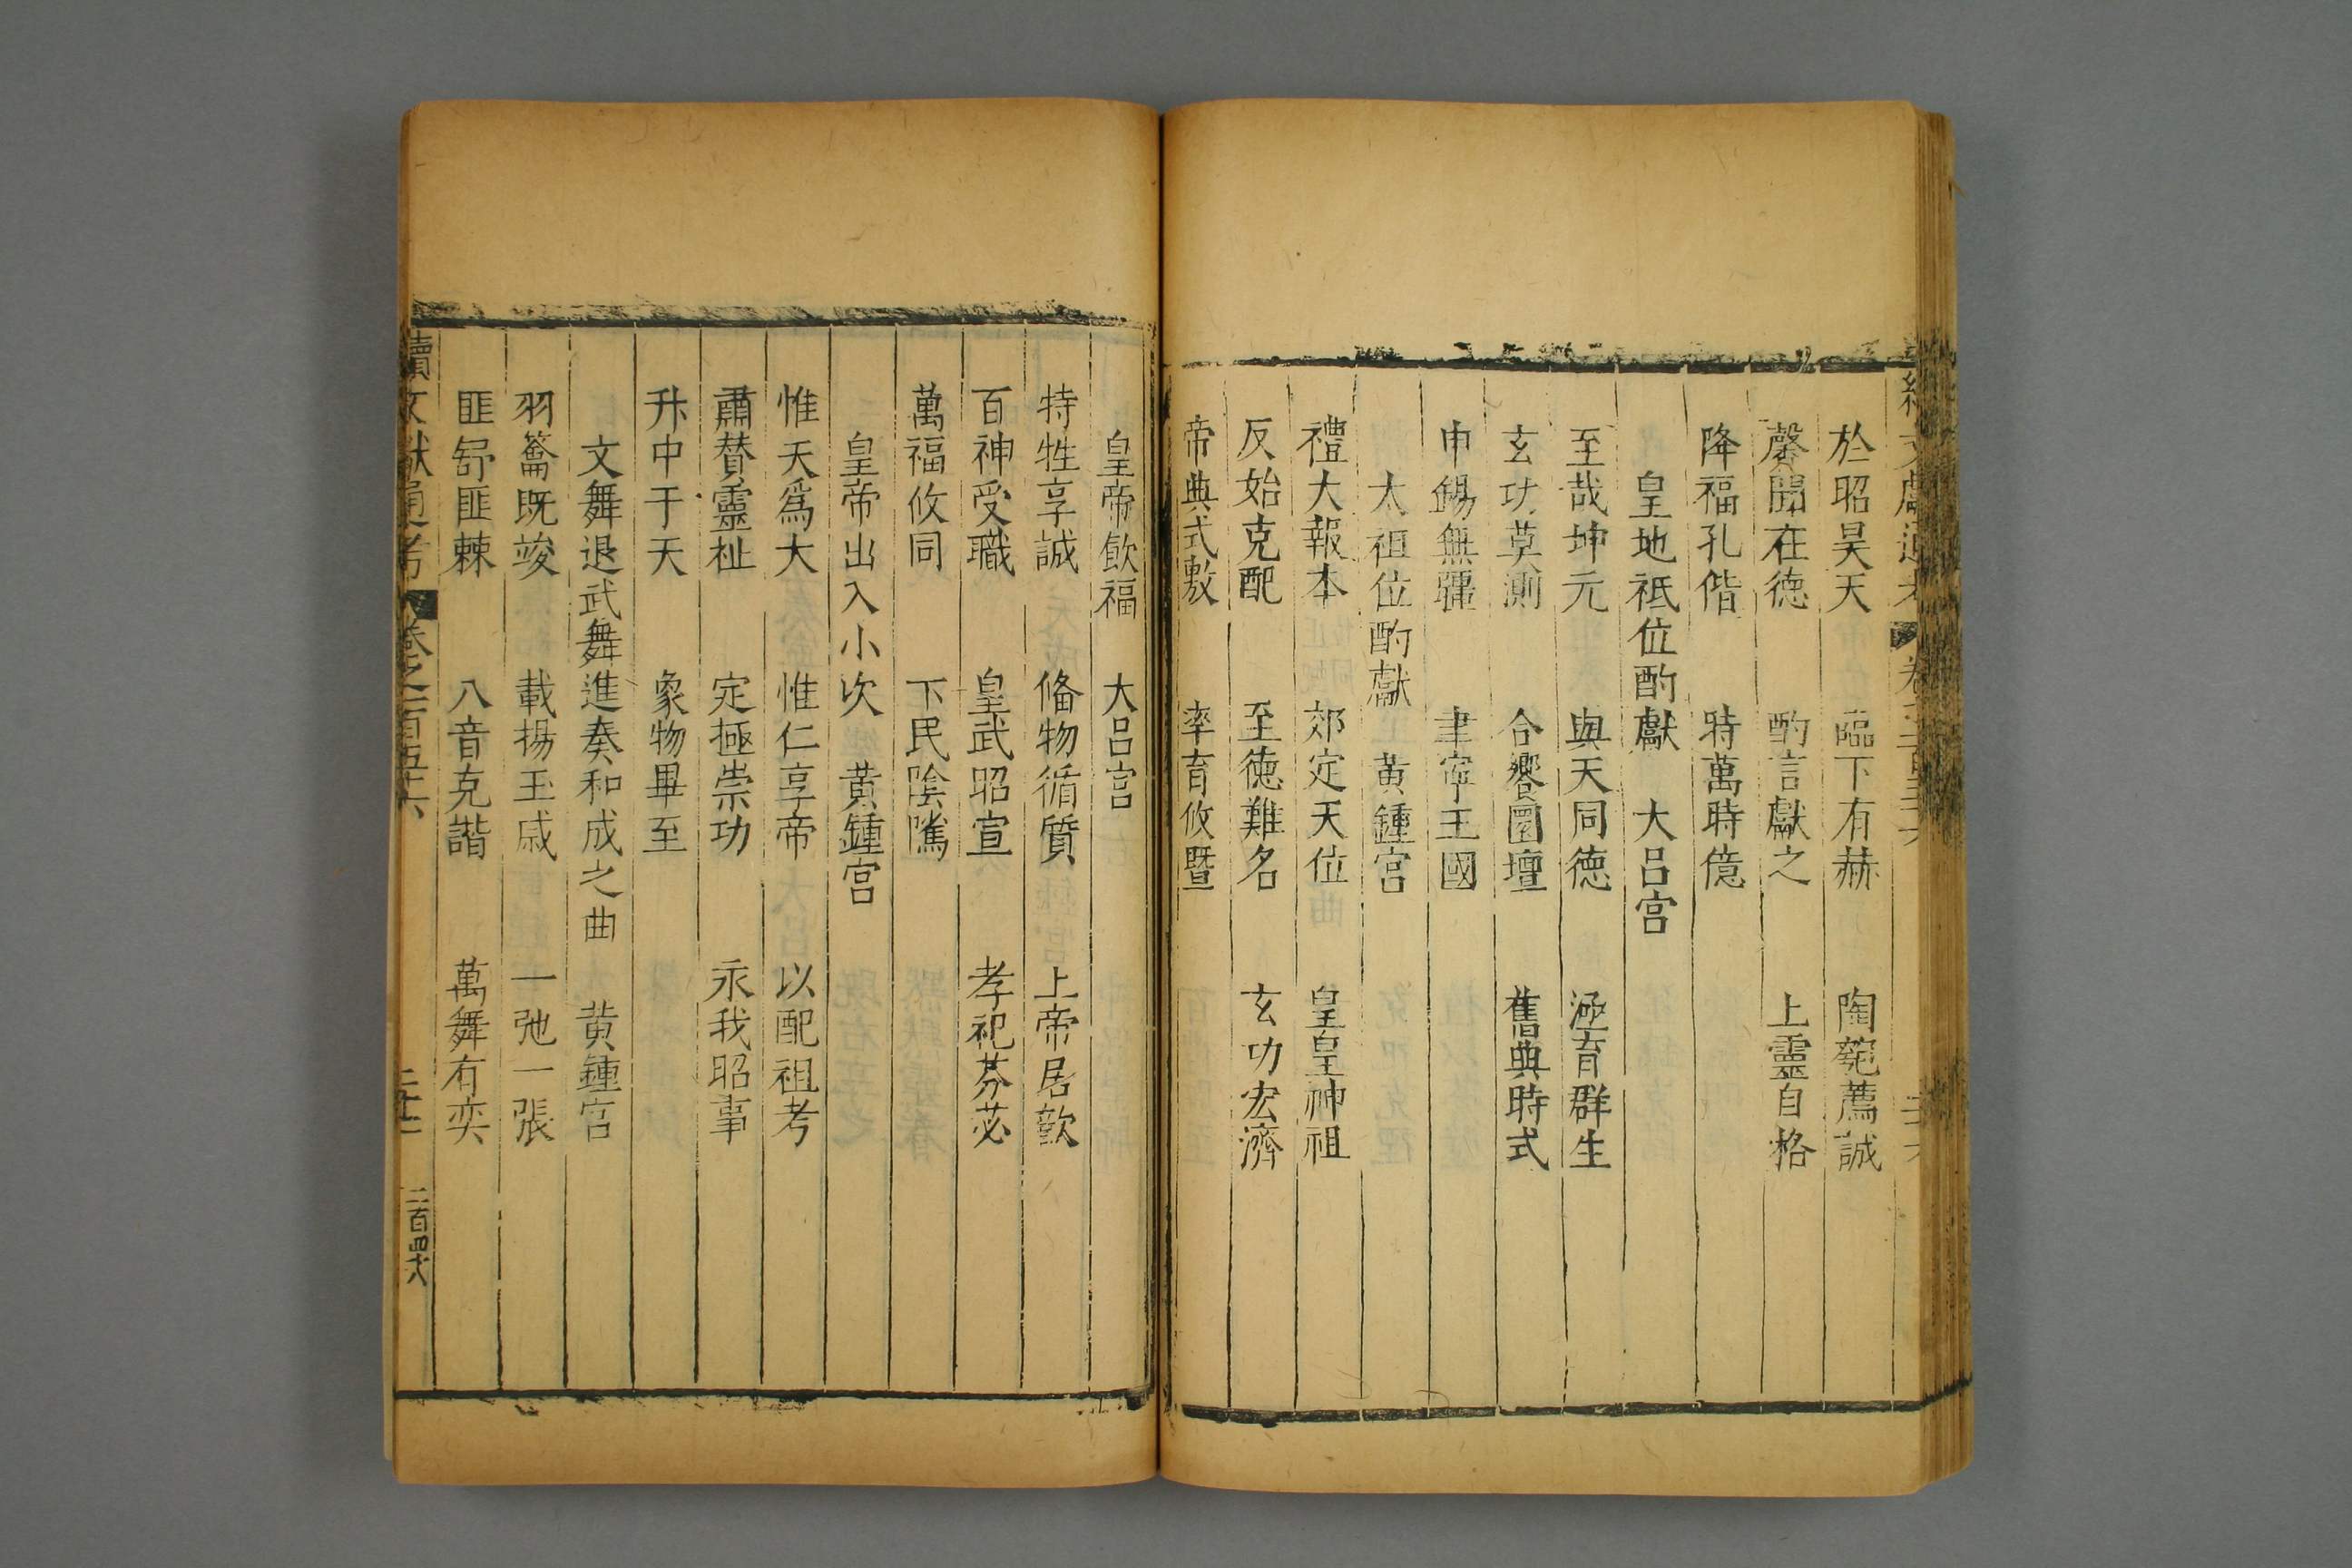 於昭昊天 臨下有赫 陶匏薦誠
馨聞在德 酌言獻之 上靈自格
降福孔偕 時萬時億
皇地祇位酌獻 大呂宮
至哉坤元 與天同德 涵育群生
玄功莫測 合饗圜壇 舊典時式
申錫無疆 聿寜王國
太祖位酌獻 黃鍾宮
禮大報本 郊定天位 皇皇神祖
反始克配 至德難名 玄功宏濟
帝典式敷 率育攸暨
皇帝飲福 大呂宮
特牲享誠 備物循質 上帝居歆
百神受職 皇武昭宣 孝祀芬苾
萬福攸同 下民陰騭
皇帝出入小次 黃鍾宮
惟天爲大 惟仁享帝 以配祖考
肅贊靈祉 定極崇功 永我昭事
升中于天 象物畢至
文舞退武舞進奏和成之曲 黃鍾宮
羽籥既竣 載揚玉戚 一弛一張
匪舒匪棘 八音克諧 萬舞有奕
續文獻通考 卷之一百五十六 二百四十八